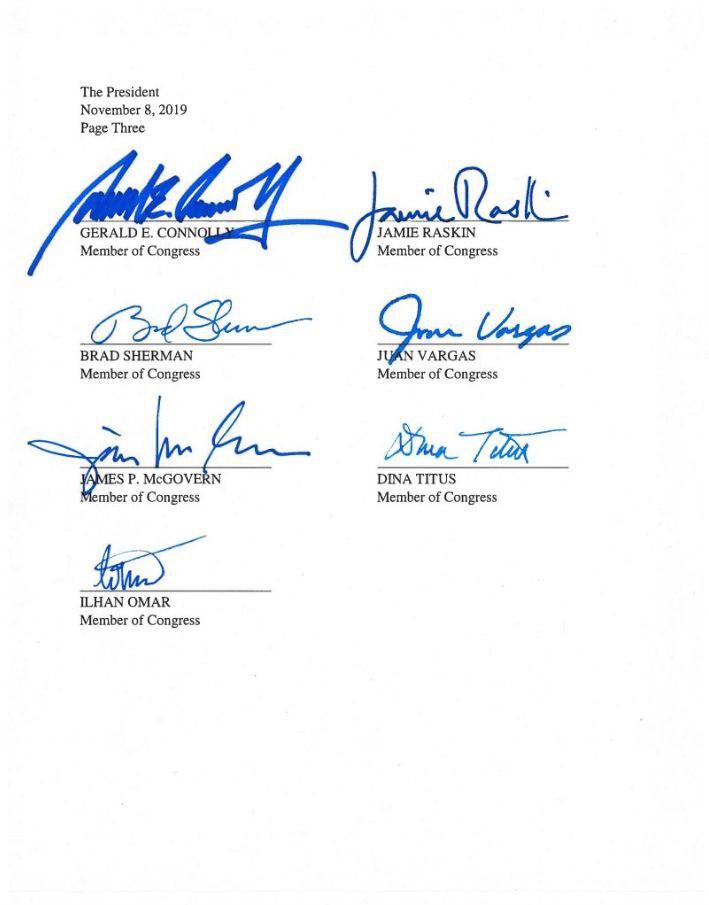 The President
November 8, 2019
Page Three
Gerald E. Connolly
Jamie Raskin
GERALD E. CONNOLLY
JAMIE RASKIN
Member of Congress
Member of Congress
Brad Sherman
Juan Vargas
BRAD SHERMAN
JUAN VARGAS
Member of Congress
Member of Congress
Jim McGovern
Dina Titus
JAMES P. McGOVERN
DINA TITUS
Member of Congress
Member of Congress
ILHAN OMAR
Member of Congress